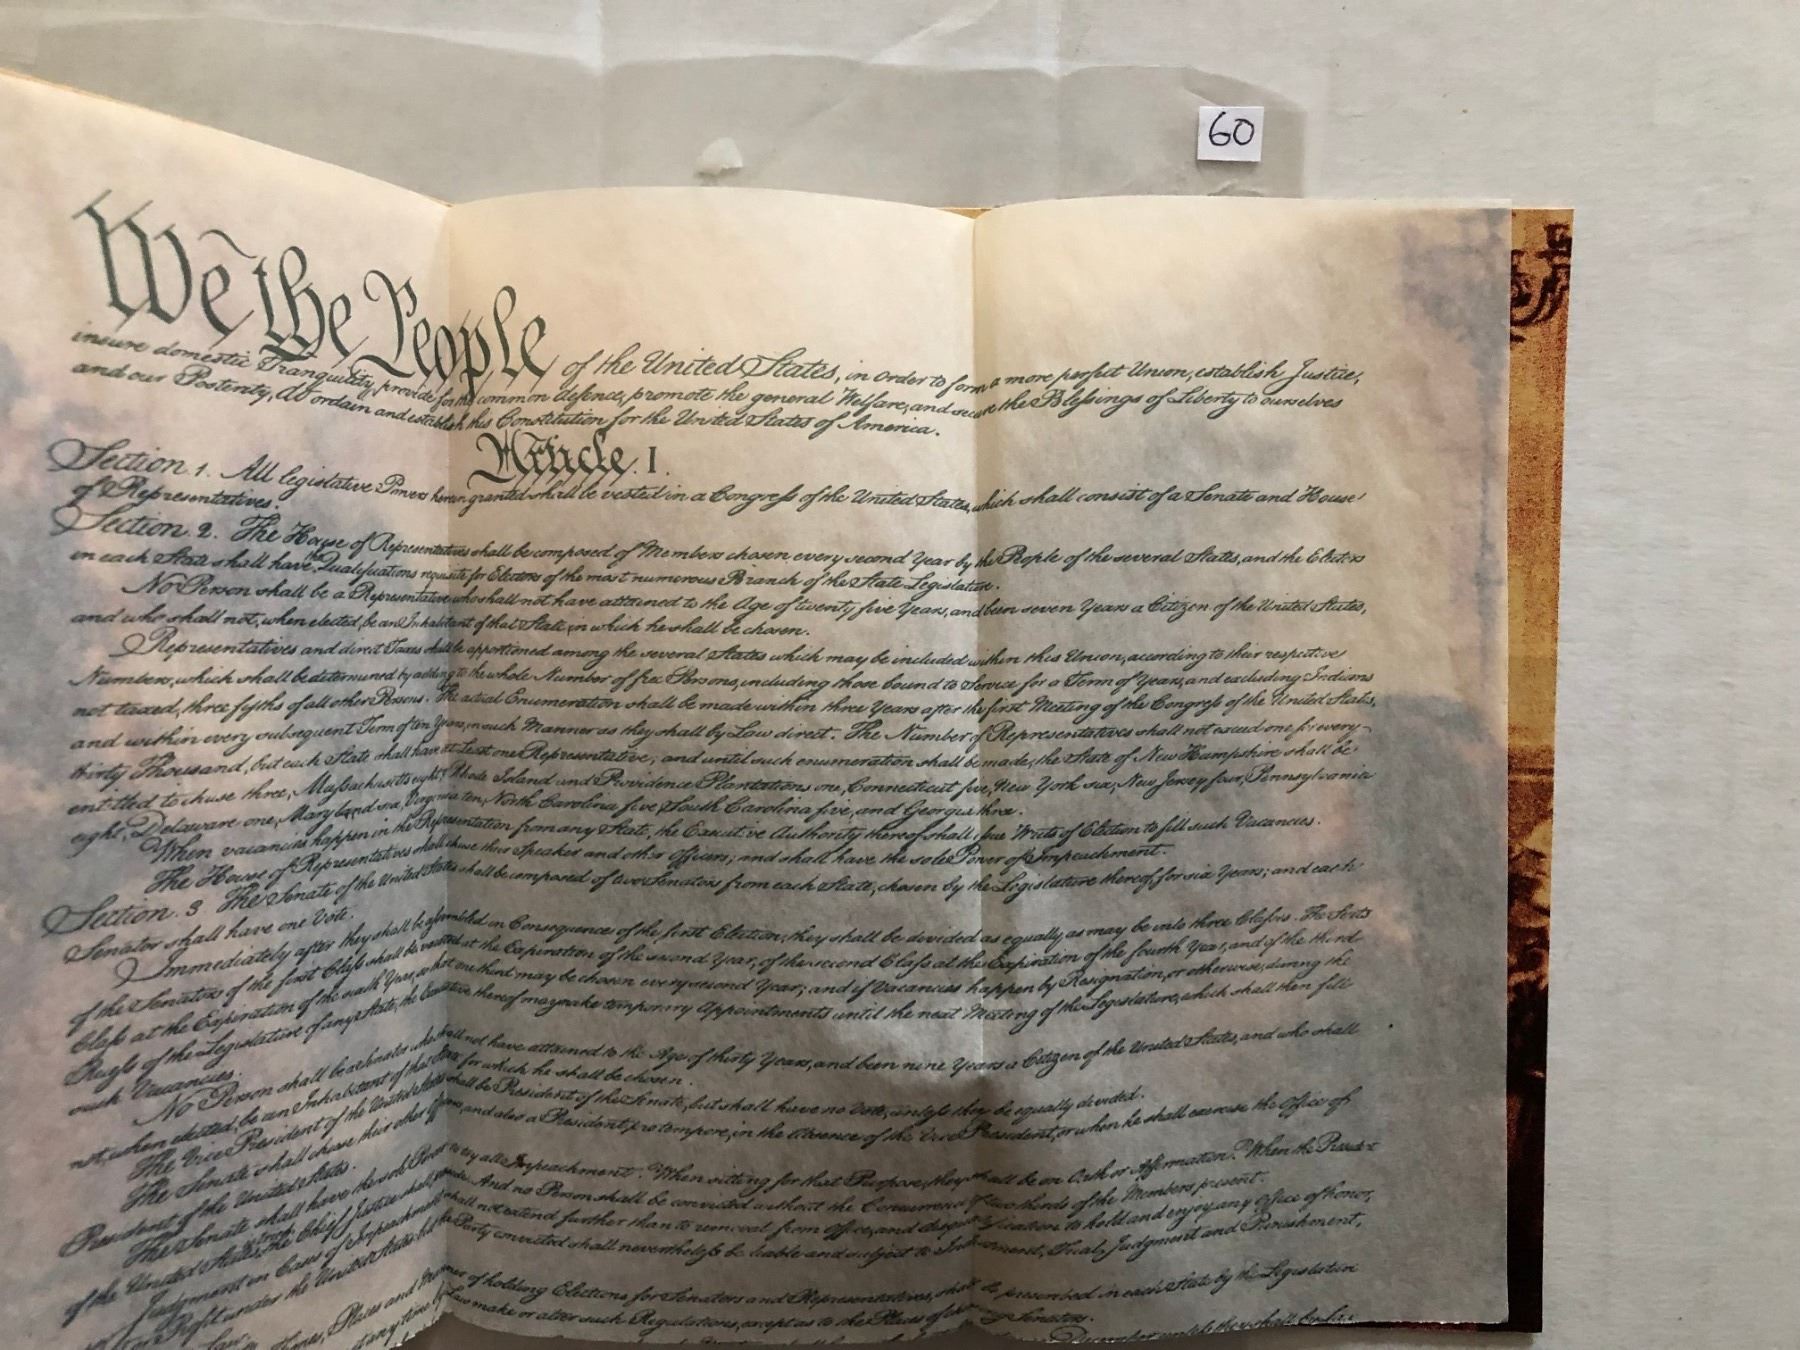 60
We the People of the United States, in Order to form a more perfect Union, establish Justice,
insure domestic Tranquility, provide for the common defence, promote the general Welfare, and secure the Blessings of Liberty to ourselves
and our Posterity, do ordain and establish this Constitution for the United States of America.
Article. I.
Section. 1. All legislative Powers herein granted shall be vested in a Congress of the United States, which shall consist of a Senate and House
of Representatives.
Section. 2. The House of Representatives shall be composed of Members chosen every second Year by the People of the several States, and the Electors
in each State shall have the Qualifications requisite for Electors of the most numerous Branch of the State Legislature.
No Person shall be a Representative who shall not have attained to the Age of twenty five Years, and been seven Years a Citizen of the United States,
and who shall not, when elected, be an Inhabitant of that State in which he shall be chosen.
Representatives and direct Taxes shall be apportioned among the several States which may be included within this Union, according to their respective
Numbers, which shall be determined by adding to the whole Number of free Persons, including those bound to Service for a Term of Years, and excluding Indians
not taxed, three fifths of all other Persons. The actual Enumeration shall be made within three Years after the first Meeting of the Congress of the United States,
and within every subsequent Term of ten Years, in such Manner as they shall by Law direct. The Number of Representatives shall not exceed one for every
thirty Thousand, but each State shall have at Least one Representative; and until such enumeration shall be made, the State of New Hampshire shall be
entitled to chuse three, Massachusetts eight, Rhode Island and Providence Plantations one, Connecticut five, New York six, New Jersey four, Pennsylvania
eight, Delaware one, Maryland six, Virginia ten, North Carolina five, South Carolina five, and Georgia three.
When vacancies happen in the Representation from any State, the Executive Authority thereof shall issue Writs of Election to fill such Vacancies.
The House of Representatives shall chuse their Speaker and other Officers; and shall have the sole Power of Impeachment.
Section. 3. The Senate of the United States shall be composed of two Senators from each State, chosen by the Legislature thereof, for six Years; and each
Senator shall have one Vote.
Immediately after they shall be assembled in Consequence of the first Election, they shall be divided as equally as may be into three Classes. The Seats
of the Senators of the first Class shall be vacated at the Expiration of the second Year, of the second Class at the Expiration of the fourth Year, and of the third
Class at the Expiration of the sixth Year, so that one third may be chosen every second Year; and if Vacancies happen by Resignation, or otherwise, during the
Recess of the Legislature of any State, the Executive thereof may make temporary Appointments until the next Meeting of the Legislature, which shall then fill
such Vacancies.
No Person shall be a Senator who shall not have attained to the Age of thirty Years, and been nine Years a Citizen of the United States, and who shall
not, when elected, be an Inhabitant of that State for which he shall be chosen.
The Vice President of the United States shall be President of the Senate, but shall have no Vote, unless they be equally divided.
The Senate shall chuse their other Officers, and also a President pro tempore, in the Absence of the Vice President, or when he shall exercise the Office of
President of the United States.
The Senate shall have the sole Power to try all Impeachments. When sitting for that Purpose, they shall be on Oath or Affirmation. When the President
of the United States is tried, the Chief Justice shall preside: And no Person shall be convicted without the Concurrence of two thirds of the Members present.
Judgment in Cases of Impeachment shall not extend further than to removal from Office, and disqualification to hold and enjoy any Office of honor,
or Profit under the United States: but the Party convicted shall nevertheless be liable and subject to Indictment, Trial, Judgment and Punishment,
Law.
Times, Places and Manner of holding Elections for Senators and Representatives, shall be prescribed in each State by the Legislature
at any time by Law make or alter such Regulations, except as to the Places of chusing Senators.
December unless they shall by Law